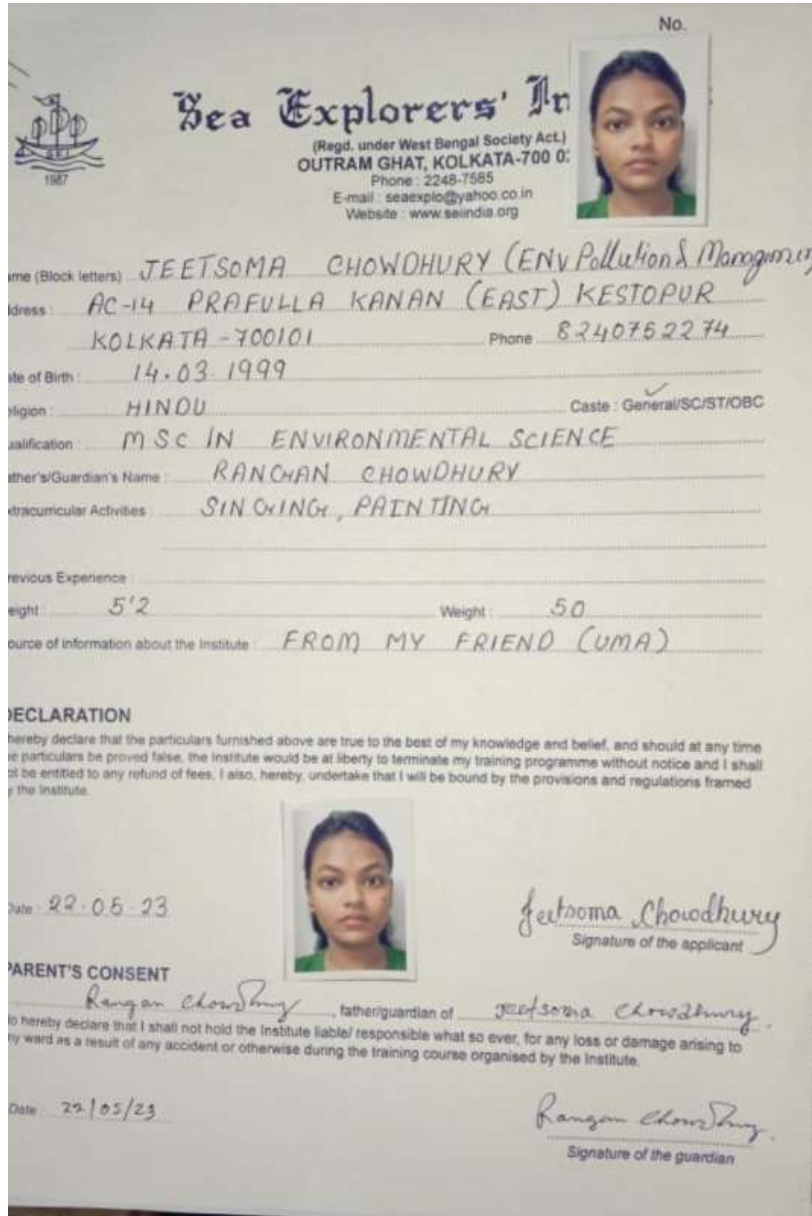 No.
Sea Explorers' In
(Regd. under West Bengal Society Act.)
OUTRAM GHAT, KOLKATA-700 0
Phone : 2248-7585
E-mail : seaexplo@yahoo.co.in
Website : www.seiindia.org
1987
ame (Block letters) JEETSOMA CHOWDHURY (ENV Pollution & Managment
ddress : AC-14 PRAFULLA KANAN (EAST) KESTOPUR
KOLKATA - 700101 Phone 8240752274
ate of Birth : 14.03.1999
eligion : HINDU Caste : General/SC/ST/OBC
ualification : MSC IN ENVIRONMENTAL SCIENCE
ather's/Guardian's Name : RANGAN CHOWDHURY
xtracurricular Activities : SINGING, PAINTING
revious Experience :
eight : 5'2 Weight : 50
ource of information about the Institute : FROM MY FRIEND (UMA)
DECLARATION
hereby declare that the particulars furnished above are true to the best of my knowledge and belief, and should at any time
e particulars be proved false, the Institute would be at liberty to terminate my training programme without notice and I shall
ot be entitled to any refund of fees. I also, hereby, undertake that I will be bound by the provisions and regulations framed
y the Institute.
Date : 22.05.23 Jeetsoma Chowdhury
Signature of the applicant
PARENT'S CONSENT
Rangan Chowdhury, father/guardian of Jeetsoma Chowdhury.
o hereby declare that I shall not hold the Institute liable/ responsible what so ever, for any loss or damage arising to
ny ward as a result of any accident or otherwise during the training course organised by the Institute.
Date : 22/05/23 Rangan Chowdhury.
Signature of the guardian